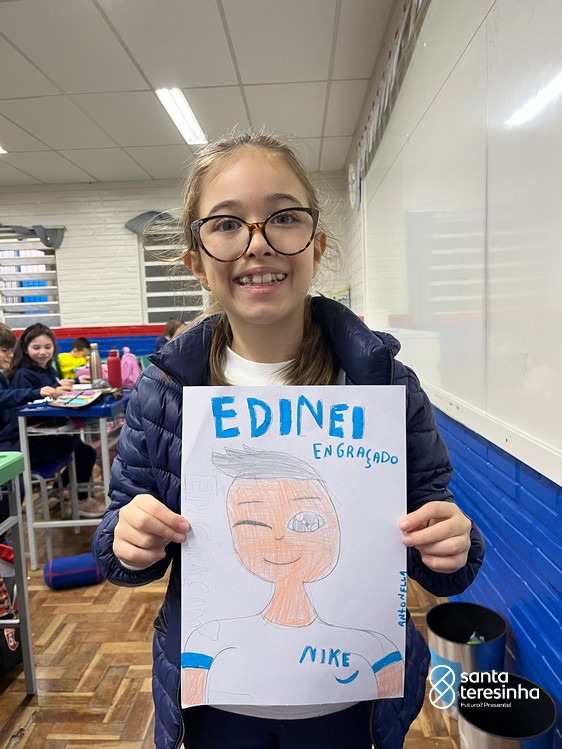 EDINEI
ENGRAÇADO
NIKE
ANTONELLA
santa
teresinha
Futuro? Presente!